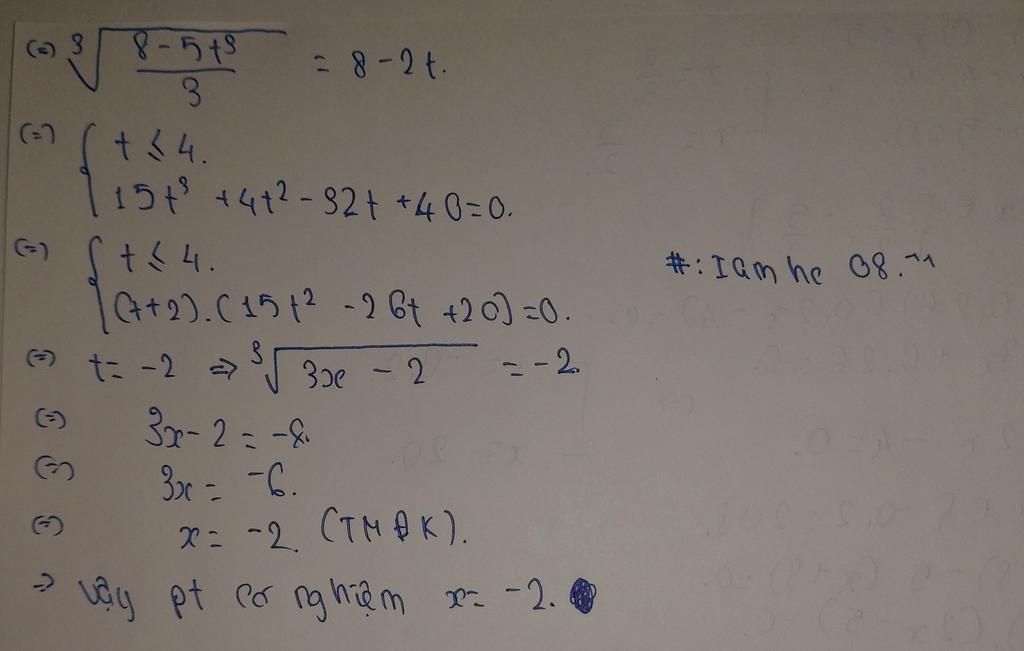 (=) ³√((8 - 5t³)/3) = 8 - 2t.
(=) { t ≤ 4.
15t³ + 4t² - 32t + 40 = 0.
(=) { t ≤ 4.
(t+2).(15t² - 26t + 20) = 0.
#: I am he 08.^^
(=) t = -2 => ³√(3x - 2) = -2
(=) 3x - 2 = -8.
(=) 3x = -6.
(=) x = -2 (TMĐK).
=> Vậy pt có nghiệm x = -2.